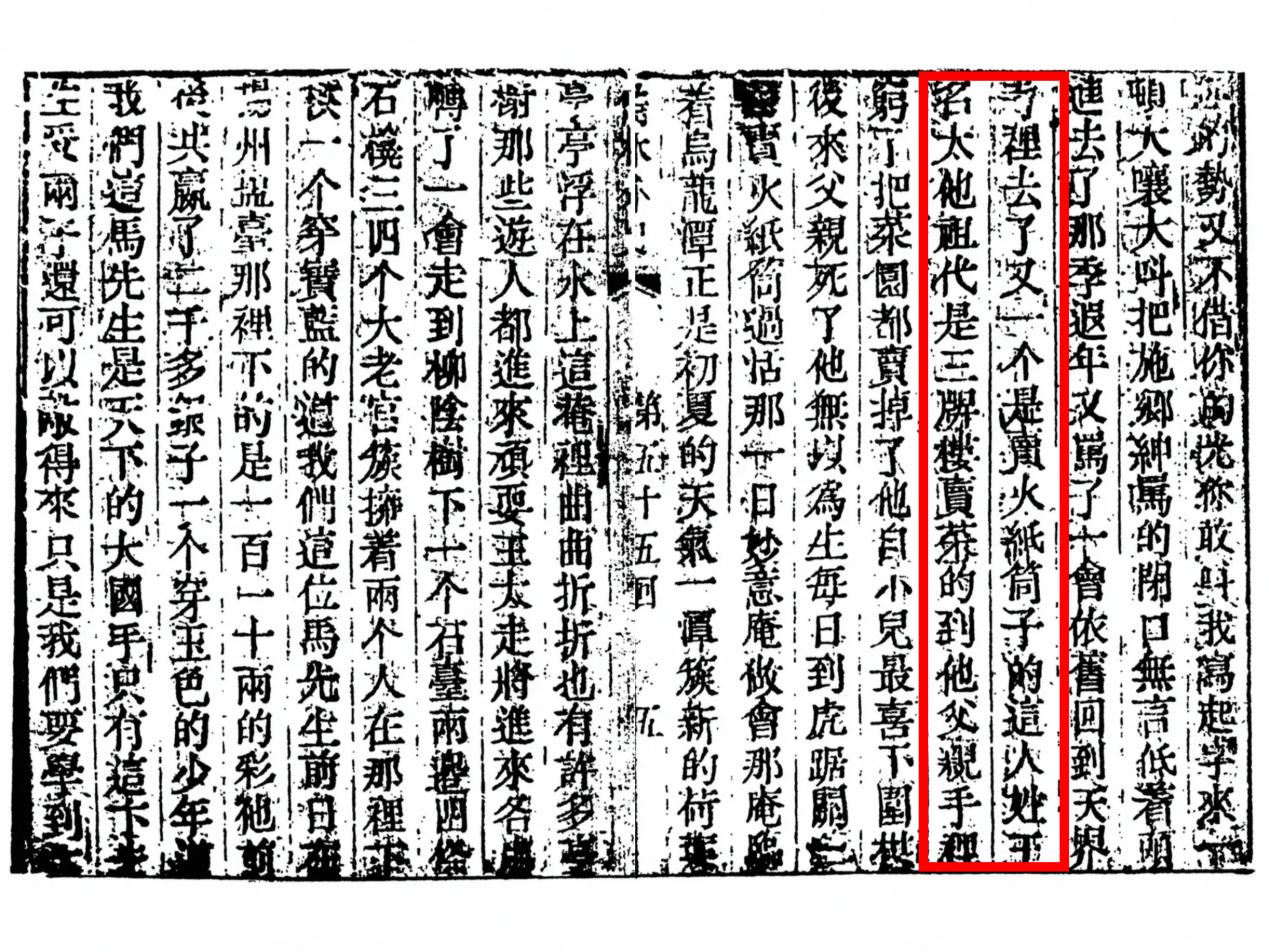 的勢又不借你的光你敢叫我寫起字來
頓大嚷大叫把施鄉紳罵的閉口無言低着頭
進去了那季遐年又罵了一會依舊回到天界
寺裡去了又一个是賣火紙筒子的這人姓王
名太他祖代是三牌樓賣菜的到他父親手裡
窮了把菜園都賣掉了他自小兒最喜下圍棋
後來父親死了他無以為生每日到虎踞關一
賣火紙筒過活那一日妙意庵做會那庵臨
着烏龍潭正是初夏的天氣一潭簇新的荷葉
第五十五回 五
亭亭浮在水上這菴裡曲曲折折也有許多亭
榭那些遊人都進來頑耍王太走將進來各處
轉了一會走到柳陰樹下一个石臺兩邊四條
石櫈三四个大老官簇擁着兩个人在那裡下
棋一个穿寶藍的道我們這位馬先生前日在
揚州鹽臺那裡下的是一百一十兩的彩他前
後共贏了二千多銀子一个穿玉色的少年道
我們這馬先生是天下的大國手只有這卞先
生受兩子還可以敵得來只是我們要學到